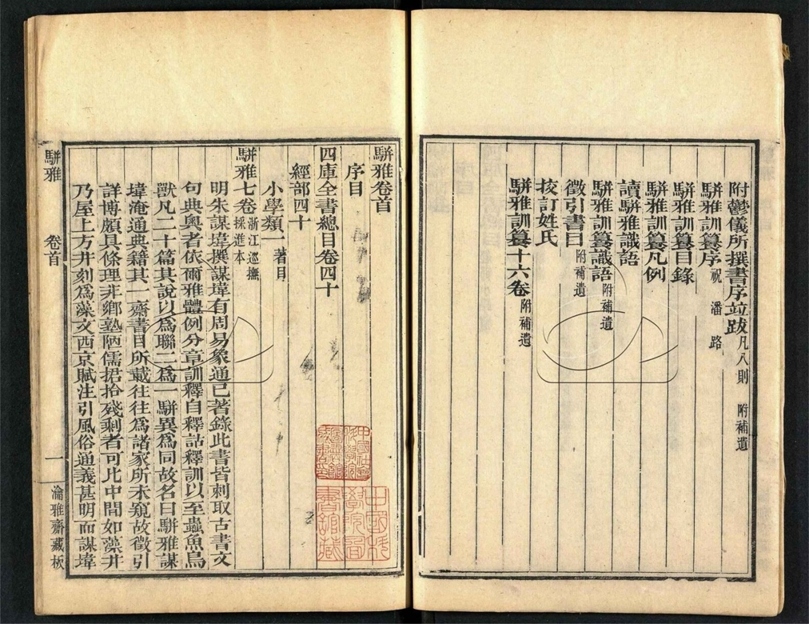 附鬱儀所撰書序竝跋凡八則 附補遺
駢雅訓纂序祝 潘 路
駢雅訓纂目錄
駢雅訓纂凡例
讀駢雅識語
駢雅訓纂識語附補遺
徵引書目附補遺
挍訂姓氏
駢雅訓纂十六卷附補遺
駢雅卷首
序目
四庫全書總目卷四十
經部四十
小學類一著目
駢雅七卷浙江巡撫採進本
明朱謀㙔撰謀㙔有周易象通已著錄此書皆剌取古書文
句典奧者依爾雅體例分章訓釋自釋詁釋訓以至蟲魚鳥
獸凡二十篇其說以爲聯二爲一駢異爲同故名曰駢雅謀
㙔淹通典籍其一齋書目所載往往爲諸家所未窺故徵引
詳博頗具條理非鄉塾陋儒捃拾殘剩者可比中間如藻井
乃屋上方井刻爲藻文西京賦注引風俗通義甚明而謀㙔
駢雅
卷首
一
瀹雅齋藏板